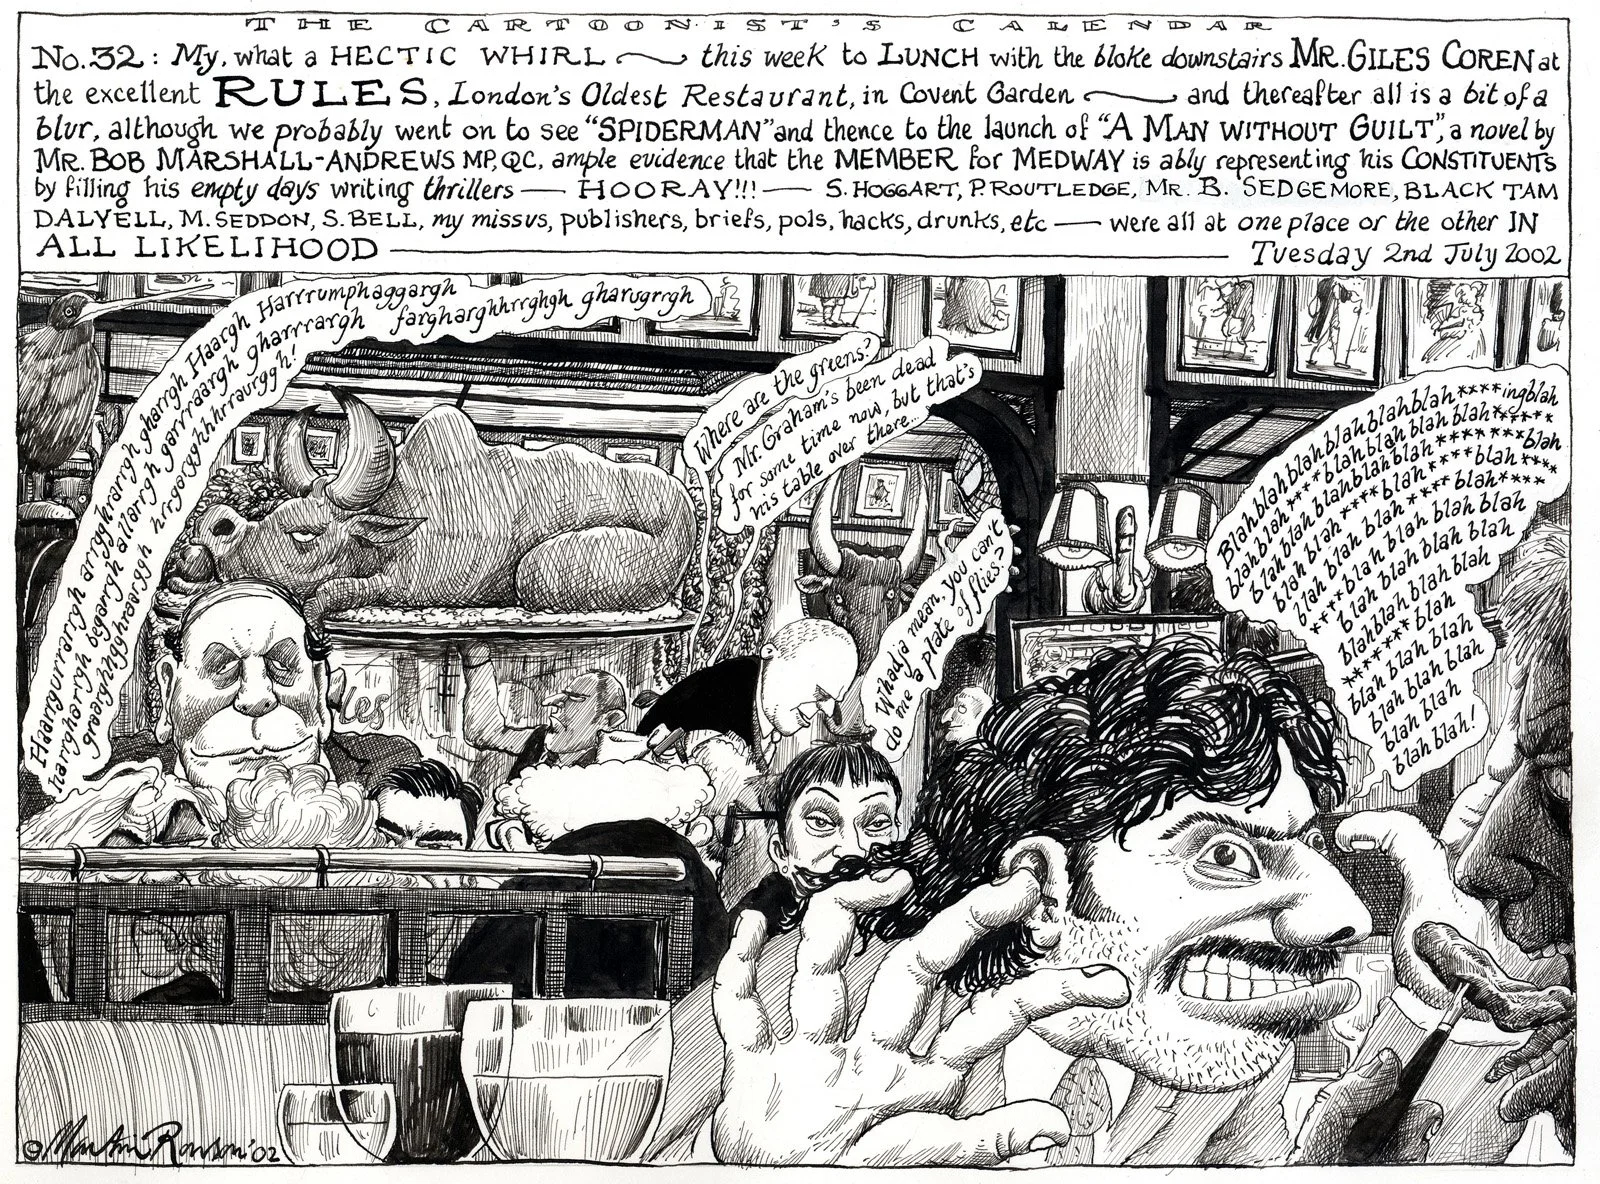 THE CARTOONIST'S CALENDAR
No.32: My, what a HECTIC WHIRL — this week to LUNCH with the bloke downstairs MR. GILES COREN at
the excellent RULES, London's Oldest Restaurant, in Covent Garden — and thereafter all is a bit of a
blur, although we probably went on to see "SPIDERMAN" and thence to the launch of "A MAN WITHOUT GUILT", a novel by
MR. BOB MARSHALL-ANDREWS MP, QC, ample evidence that the MEMBER for MEDWAY is ably representing his CONSTITUENTS
by filling his empty days writing thrillers — HOORAY!!! — S. HOGGART, P. ROUTLEDGE, MR. B. SEDGEMORE, BLACK TAM
DALYELL, M. SEDDON, S. BELL, my missus, publishers, briefs, pols, hacks, drunks, etc — were all at one place or the other IN
ALL LIKELIHOOD — Tuesday 2nd July 2002
Haargurrarrgh Haargh Harrrumphaggargh
gharrrrargh farghargghhrrghgh gharugrrgh
Where are the greens?
Mr. Graham's been dead
for some time now, but that's
his table over there...
Whadja mean, you can't
do me a plate of flies?
Blahblahblahblahblahblahblah****ingblah
blahblah****blahblahblahblahblah******
blah blahblahblahblahblah*******blah
blah blah****blah****blah****
blah blah blah blah****blah****
****blah blah blah blah blah blah
blah blah blah blah blah
blahblahblahblahblah
******blah blah
blah blah blah
blah blah blah
blah blah
blah blah!
les
© Martin Rowson '02